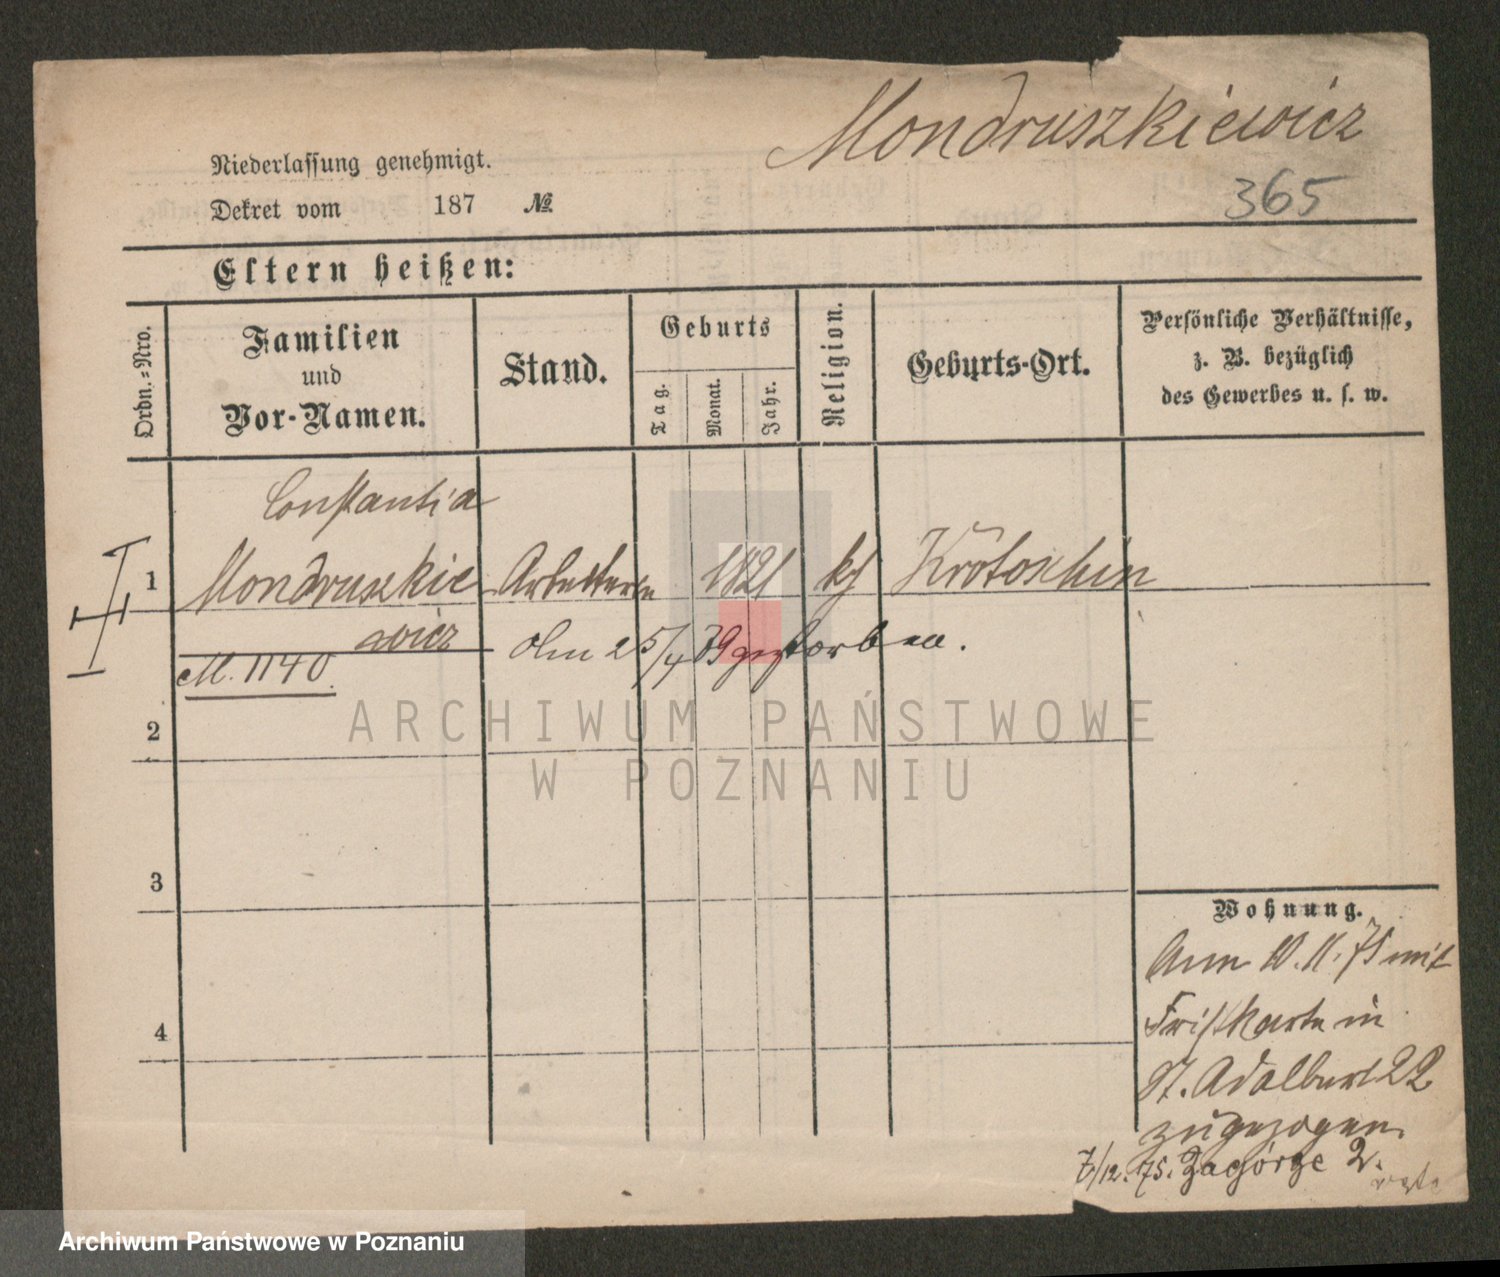 Mondruszkiewicz
365
Niederlassung genehmigt.
Dekret vom 187 №
Eltern heißen:
Ordn.-Nro.
Familien
und
Vor-Namen.
Stand.
Geburts
Tag.
Monat.
Jahr.
Religion.
Geburts-Ort.
Persönliche Verhältnisse,
z. B. bezüglich
des Gewerbes u. s. w.
Constantia
1 Mondruszkie Arbeiterin 1821 kth Krotoschin
wicz am 25/4 79 gestorben.
M. 1140.
2
3
4
Wohnung.
Am 10.11.75 mit
Fristkarte in
St. Adalbert 22
zugezogen.
7/12. 75. Zagórze 2.
ARCHIWUM PAŃSTWOWE
W POZNANIU
Archiwum Państwowe w Poznaniu